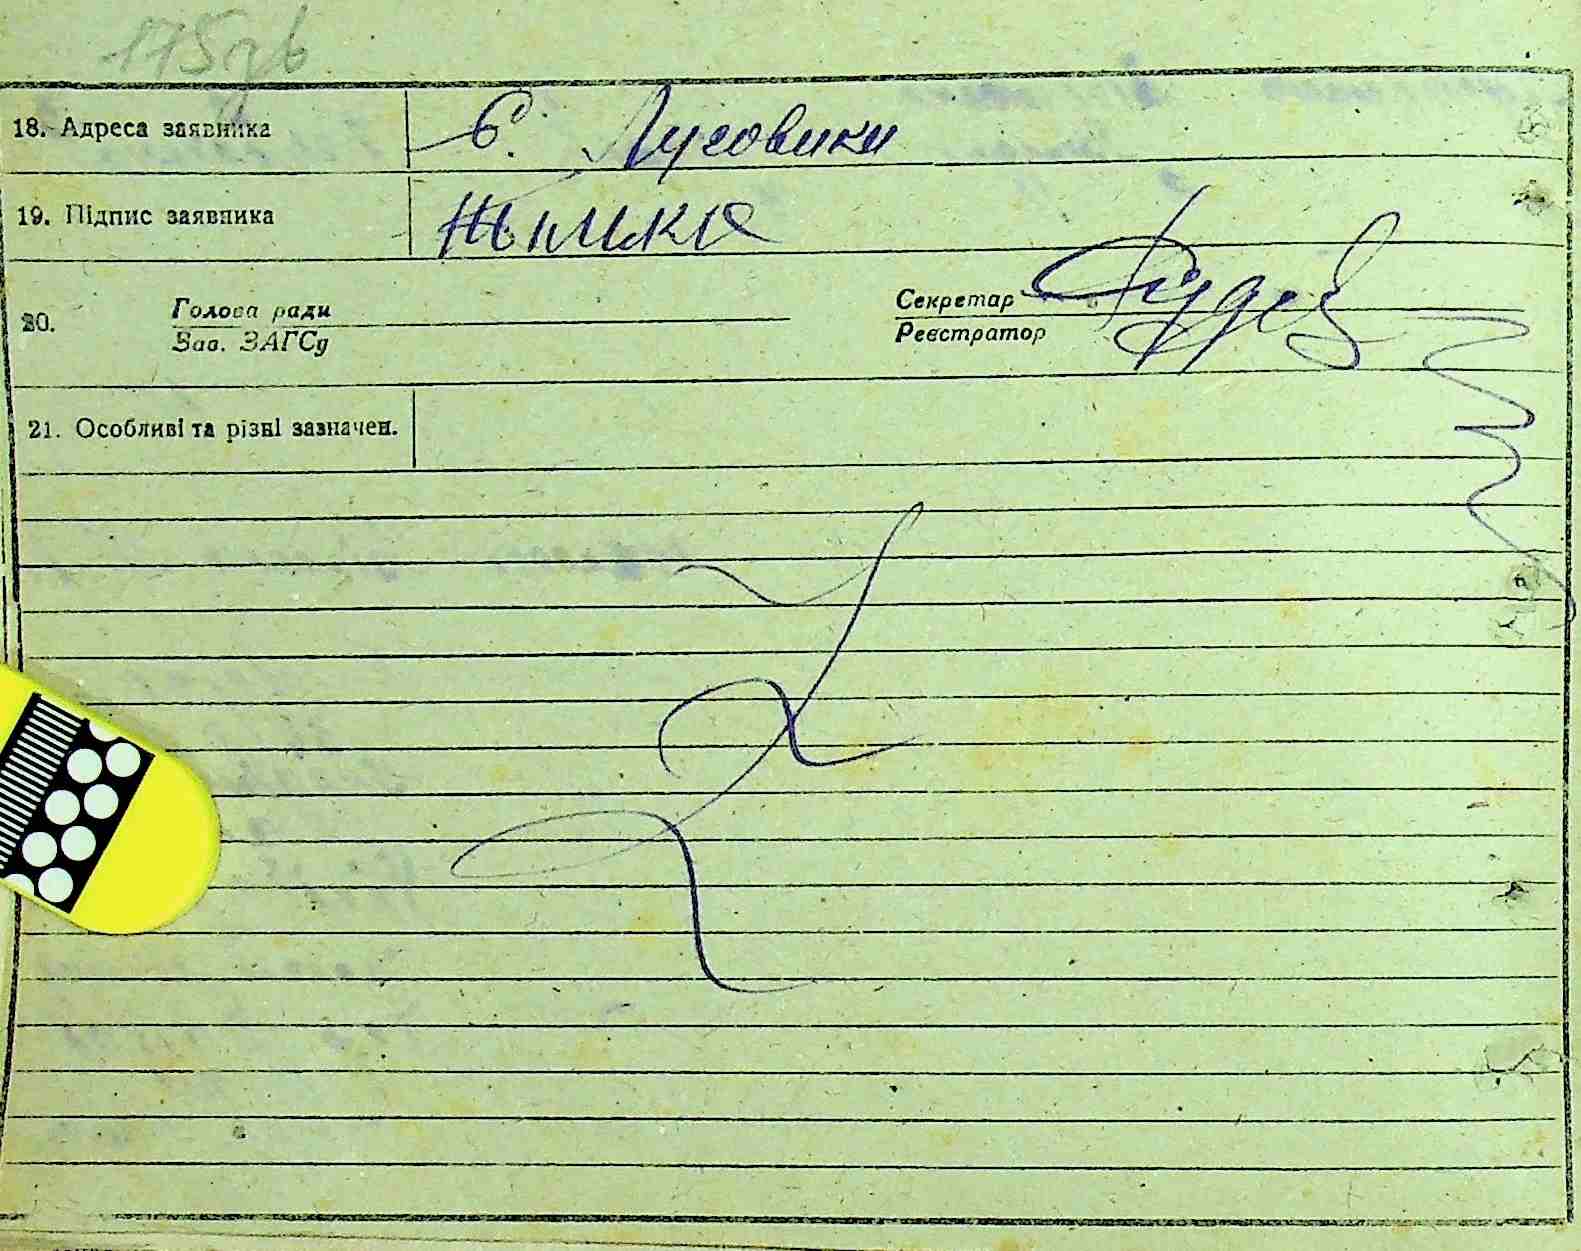 175зв
18. Адреса заявника с. Лусовики
19. Підпис заявника
20. Голова ради Секретар
Зав. ЗАГСу Реєстратор
21. Особливі та різні зазначен.